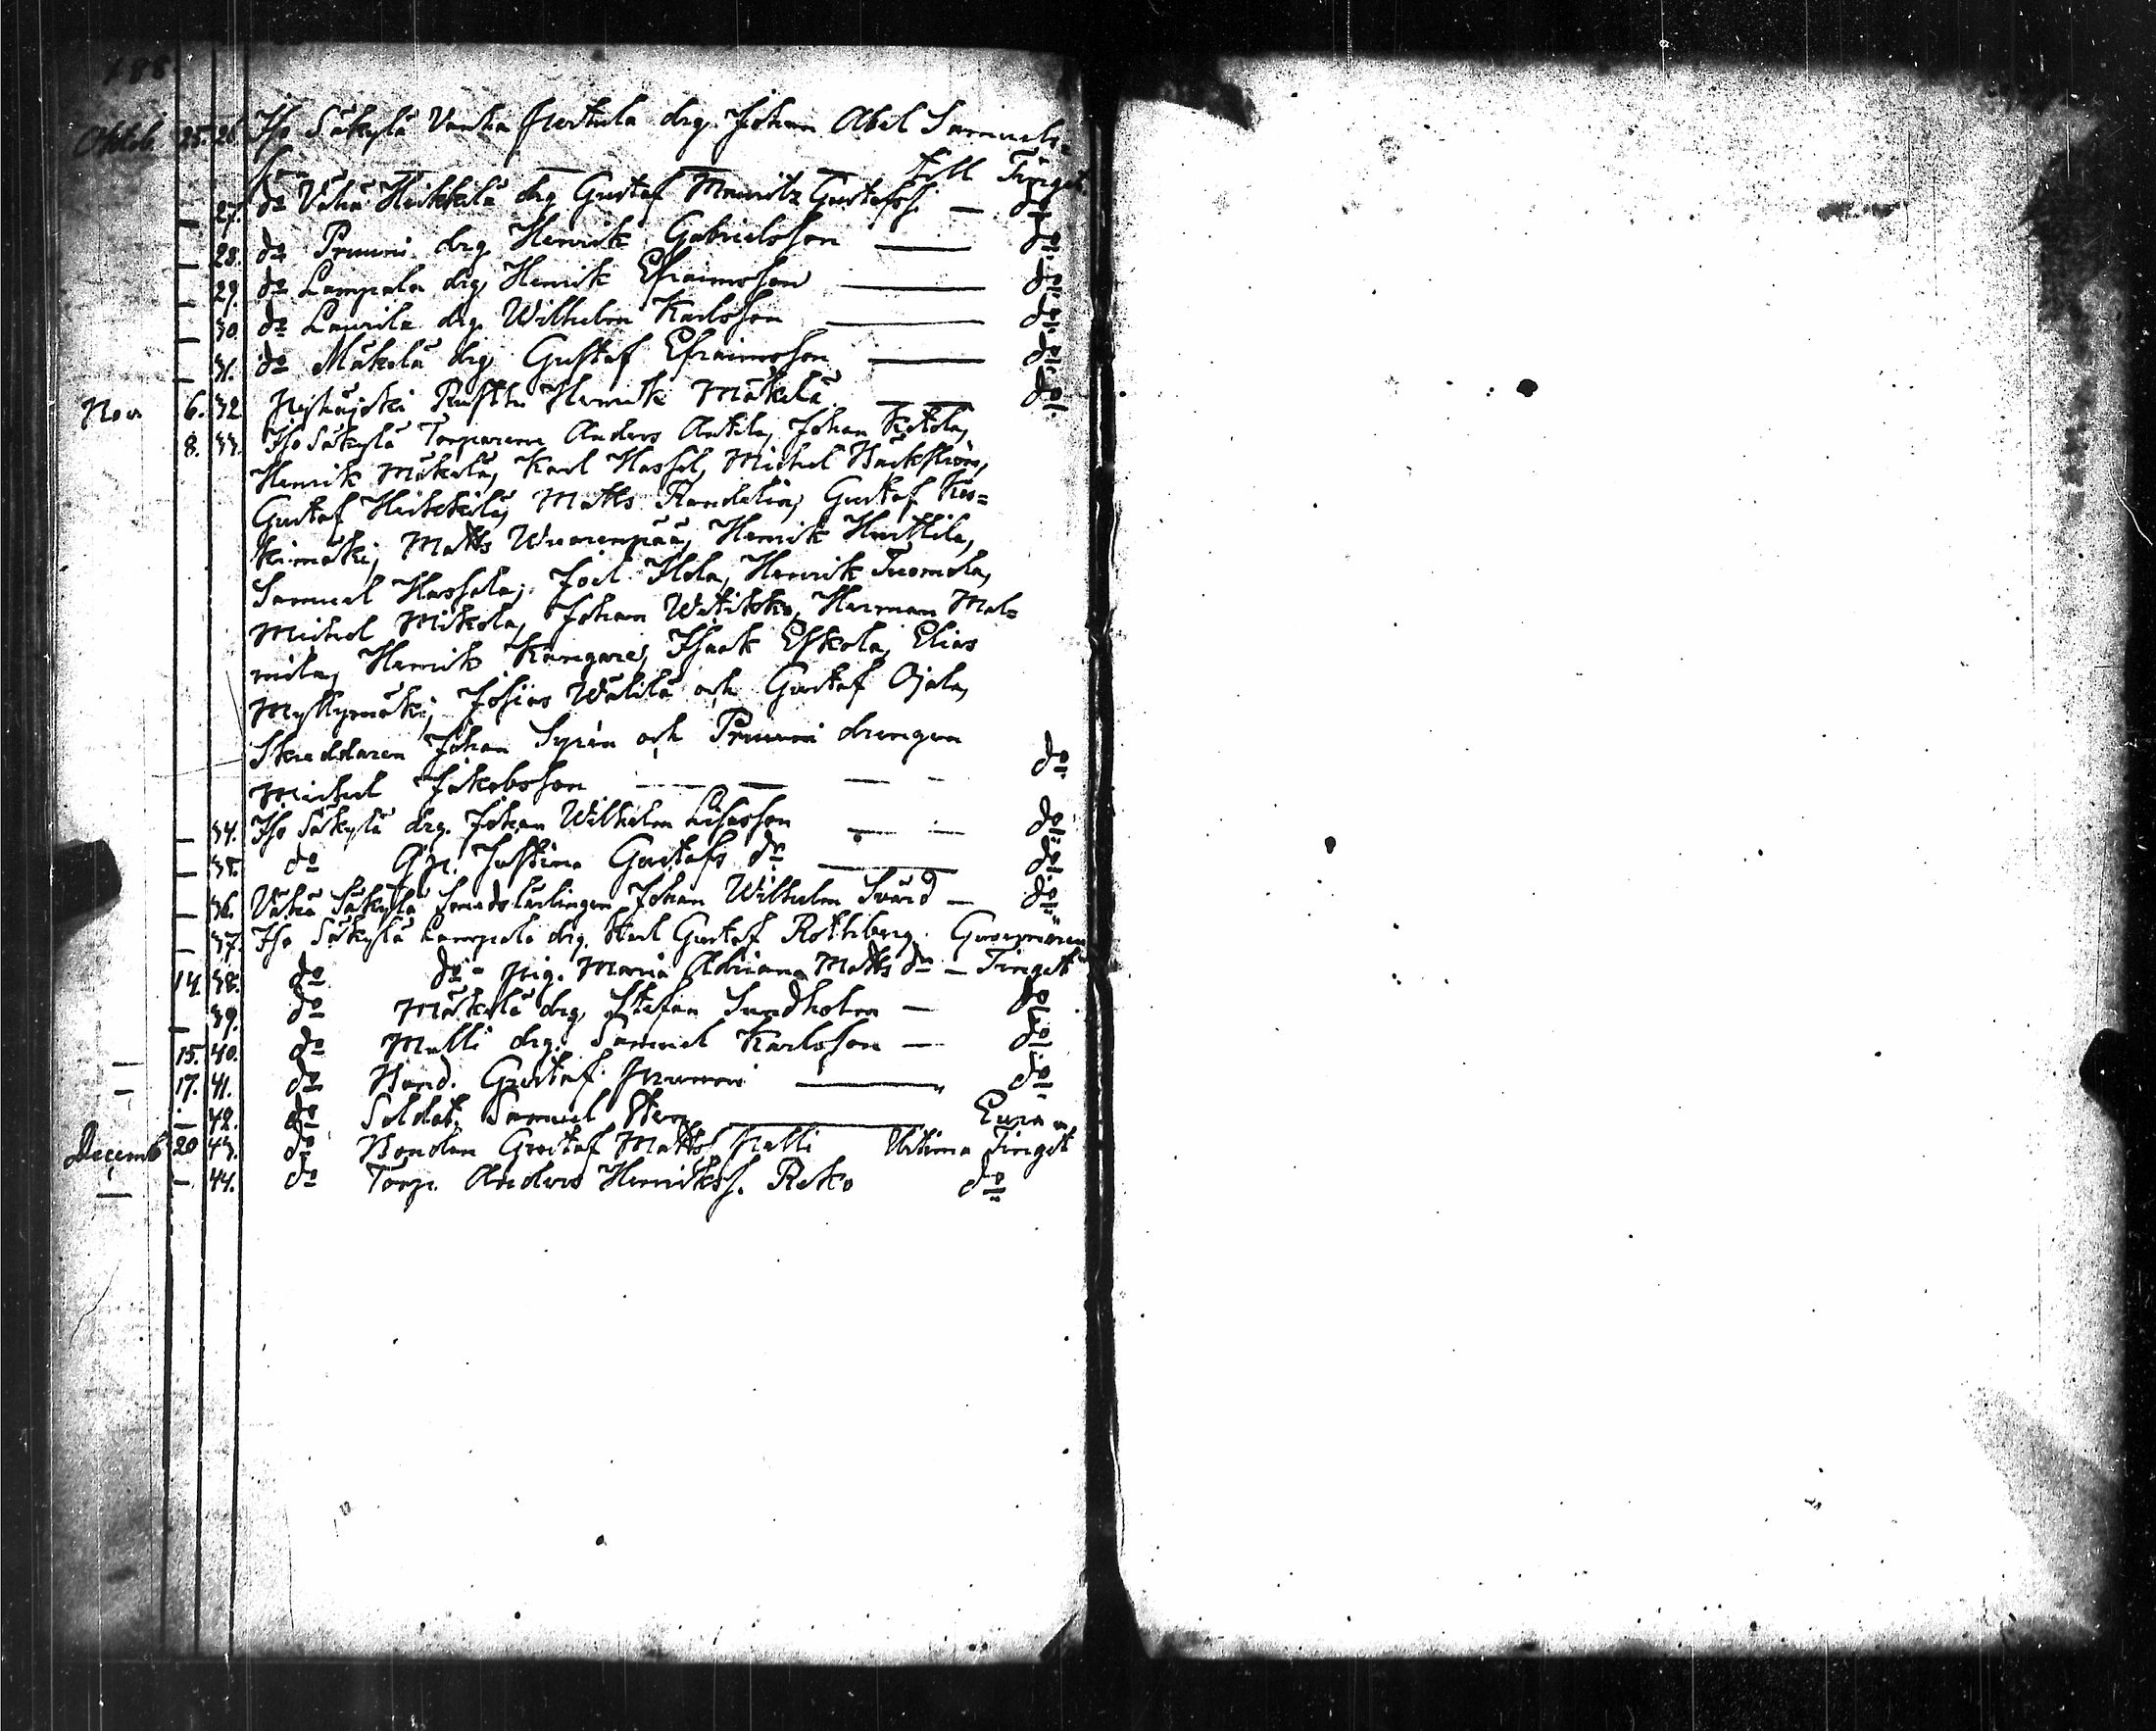 188
Oktob. 25. 26. Iso Säkylä Vanha Perttula drg. Johan Abel Samuels=
son — — — till Tinget
— 27. do Vähä Heikkilä drg Gustaf Mauritz Gustafss. — do
— 28. do Pruuni drg Henrik Gabrielsson — do
— 29. do Lampala drg Henrik Efraimsson — do
— 30 do Laurila drg. Wilhelm Karlsson — do
— 31. do Mäkelä drg Gustaf Efraimsson — do
Nov 6. 32 Rusth. Henrik Mäkelä — — do
8. 33. Iso Säkylä Torparene Anders Antila, Johan Ketola,
Henrik Mäkelä, Karl Hassel, Michel Bäckström,
Gustaf Heikkilä, Matts Randelin, Gustaf Kos=
kimäki, Matts Wuorenpää, Henrik Huttila,
Samuel Hassela, Joel Ilola, Henrik Tuomola,
Michel Mikola, Johan Watikko, Herman Mal=
mila, Henrik Kangare, Isaak Eskola, Elias
Myllymäki, Josias Wälilä och Gustaf Ojala,
Skreddaren Johan Syrén och Pruuni drengen
Michel Jakobsson — — — - do
— 34. Iso Säkylä drg. Johan Wilhelm — — do
— 35. do Justina Gustafs dr — do
— 36. Vähä Säkylä Smedslärlingen Johan Wilhelm Svärd — do
— 37. Iso Säkylä Lampala drg. Karl Gustaf Rothberg.
14. 38. do do pig. Maria Adriana Matts dr — Tinget
— 39. do Mäkelä drg Stefan Sundholm — do
— 15. 40. do Malli drg. Samuel Karlsson — do
— 17. 41. do Bond. Gustaf Pruuni — do
— 42. do Soldat. Samuel — Eura
Decemb 20 43. do Bonden Gustaf Mattss. Malli Urtima Tinget
— — 44. do Torp. Anders Henrikss. Reko do